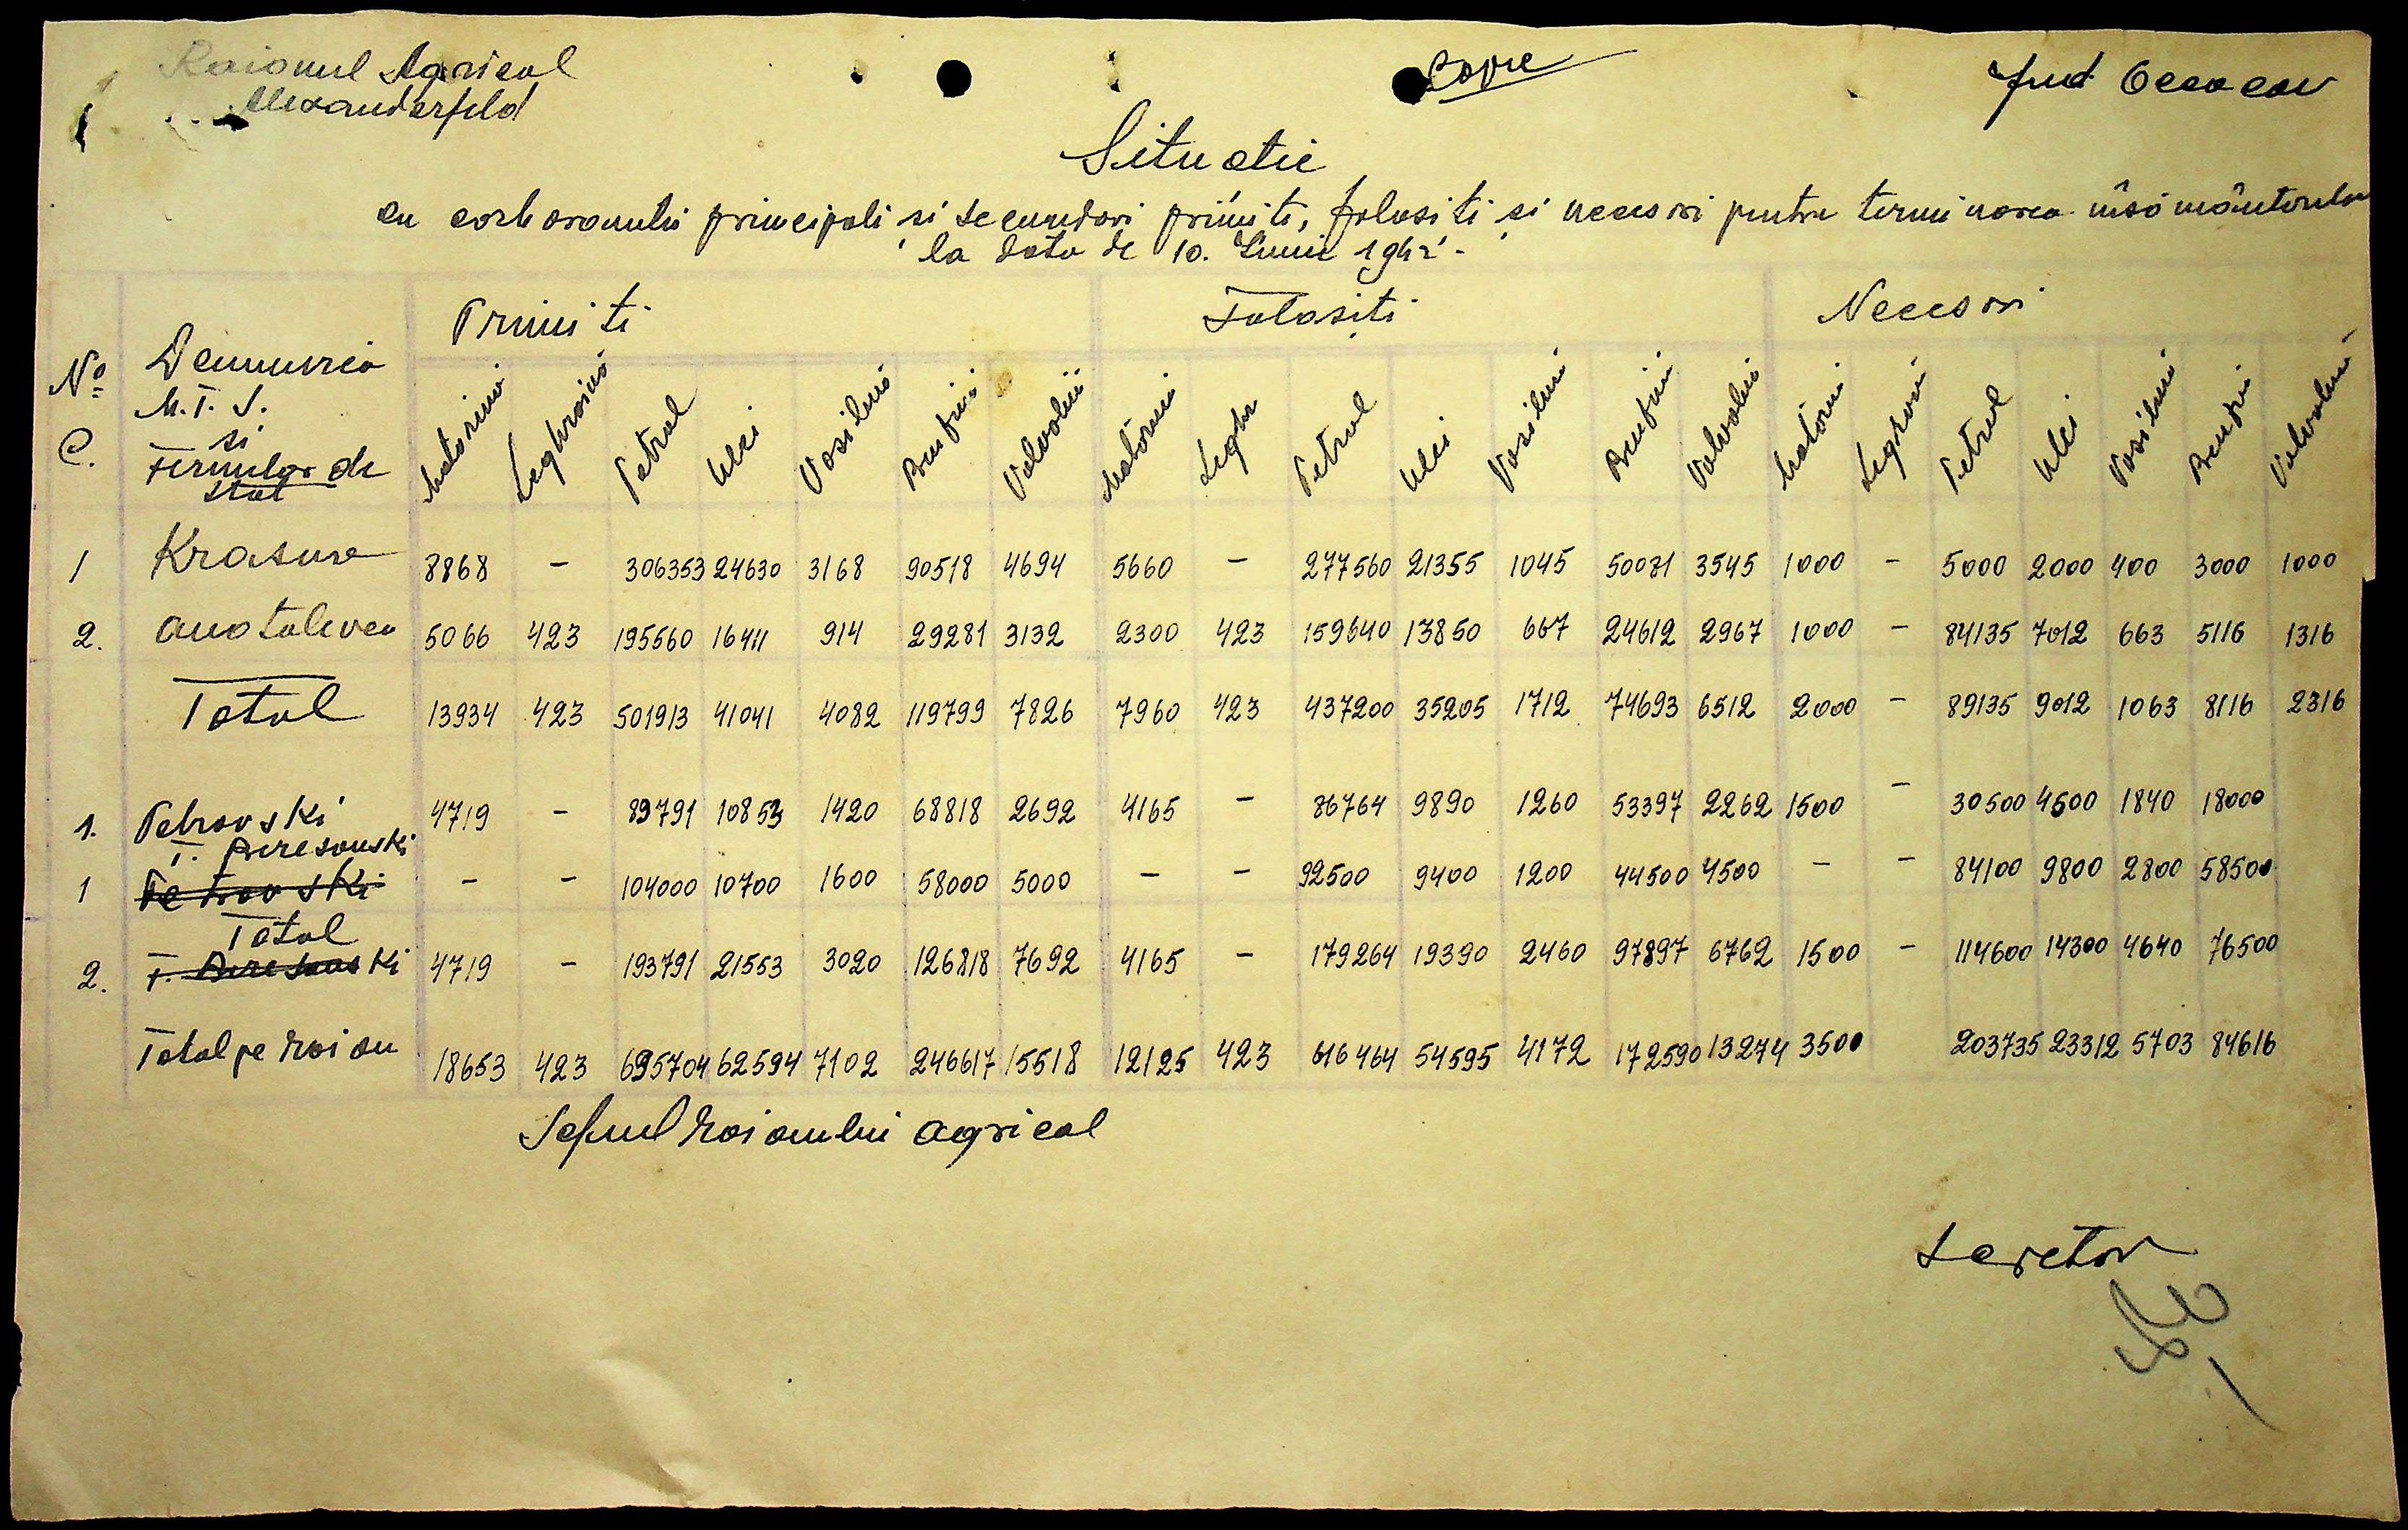 Raionul Agricol
Alexanderfeld
Copie
Jud Oceacov
Situatie
cu carburantii principali si secundari primiti, folositi si necesari pentru terminarea însămânțarilor
la data de 10. Iunie 1942 -
No C. Denumirea M.T.S. si Fermelor de Stat Primiti Folositi Necesari
Motorină Leghroină Petrol Ulei Vasilină Benzină Valvolină Motorină Leghr Petrol Ulei Vasilină Benzină Valvolină Motorină Leghroină Petrol Ulei Vasilină Benzină Valvolină
1 Krasnoe 8868 - 306353 24630 3168 90518 4694 5660 - 277560 21355 1045 50081 3545 1000 - 5000 2000 400 3000 1000
2. Anotolievca 5066 423 195560 16411 914 29281 3132 2300 423 159640 13850 667 24612 2967 1000 - 84135 7012 663 5116 1316
Total 13934 423 501913 41041 4082 119799 7826 7960 423 437200 35205 1712 74693 6512 2000 - 89135 9012 1063 8116 2316
1. Petrovski 4719 - 89791 10853 1420 68818 2692 4165 - 86764 9890 1260 53397 2262 1500 - 30500 4500 1840 18000
T. Beresouski
1 Petrovski - - 104000 10700 1600 58000 5000 - - 92500 9400 1200 44500 4500 - - 84100 9800 2800 58500
Total
2. T. Beresouski 4719 - 193791 21553 3020 126818 7692 4165 - 179264 19390 2460 97897 6762 1500 - 114600 14300 4640 76500
Total pe raion 18653 423 695704 62594 7102 246617 15518 12125 423 616464 54595 4172 172590 13274 3500 203735 23312 5703 84616
Seful raionului agricol
Secretar